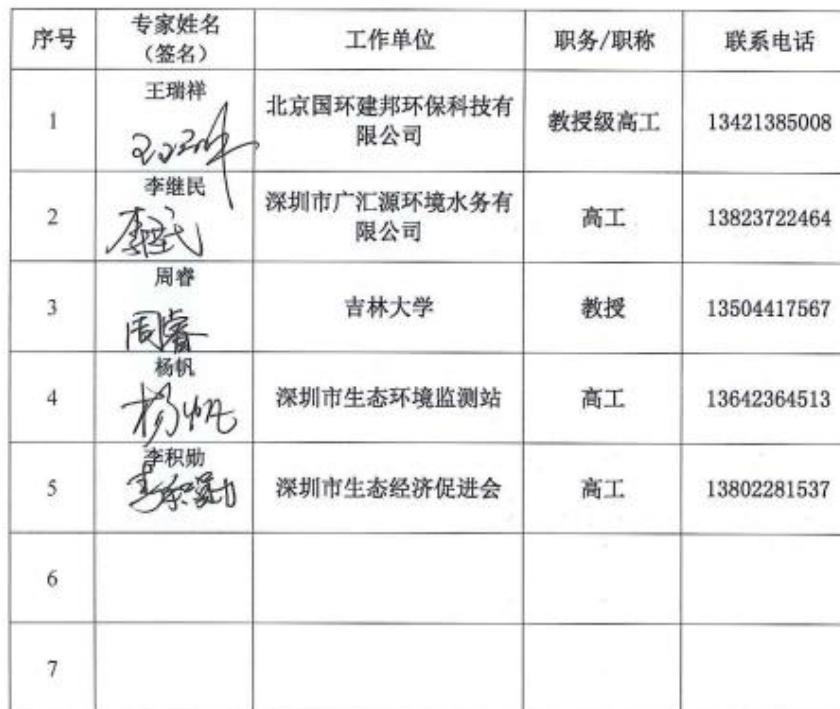 序号 专家姓名（签名） 工作单位 职务/职称 联系电话
1 王瑞祥 北京国环建邦环保科技有限公司 教授级高工 13421385008
2 李继民 深圳市广汇源环境水务有限公司 高工 13823722464
李继民
3 周睿 吉林大学 教授 13504417567
周睿
4 杨帆 深圳市生态环境监测站 高工 13642364513
杨帆
5 李积勋 深圳市生态经济促进会 高工 13802281537
李积勋
6
7